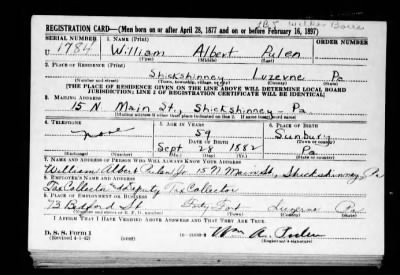 REGISTRATION CARD—(Men born on or after April 28, 1877 and on or before February 16, 1897)
SERIAL NUMBER
1. NAME (Print)
U 1784
William Albert Pulen
(First) (Middle) (Last)
2. PLACE OF RESIDENCE (Print)
Shickshinney Luzerne Pa
(Number and street) (Town, township, village, or city) (County) (State)
[THE PLACE OF RESIDENCE GIVEN ON THE LINE ABOVE WILL DETERMINE LOCAL BOARD
JURISDICTION; LINE 2 OF REGISTRATION CERTIFICATE WILL BE IDENTICAL]
3. MAILING ADDRESS
15 N Main St, Shickshinney - Pa.
[Mailing address if other than place indicated on line 2. If same insert word same]
4. TELEPHONE
5. AGE IN YEARS
6. PLACE OF BIRTH
none
59
Sunbury
DATE OF BIRTH
(Town or county)
Sept 28 1882
Pa
(Exchange) (Number) (Mo.) (Day) (Yr.) (State or country)
7. NAME AND ADDRESS OF PERSON WHO WILL ALWAYS KNOW YOUR ADDRESS
William Albert Jr. 15 N Main St, Shickshinney, Pa
8. EMPLOYER'S NAME AND ADDRESS
Tax Collector Deputy Tax Collector
9. PLACE OF EMPLOYMENT OR BUSINESS
73 Bedford St Forty Fort Luzerne Pa
(Number and street or R. F. D. number) (Town) (County) (State)
I AFFIRM THAT I HAVE VERIFIED ABOVE ANSWERS AND THAT THEY ARE TRUE.
D. S. S. Form 1
(Revised 4-1-42) (over)
Wm A.
(Registrant's signature)